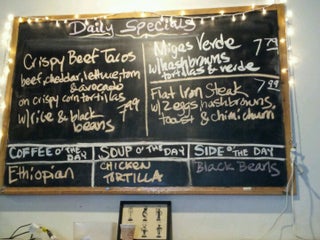 Daily Specials
Crispy Beef Tacos
beef, cheddar, lettuce, tom
& avocado
on crispy corn tortillas
w/ rice & black
beans 7.99
Migas Verde 7.79
w/ hashbrowns
tortillas & verde
Flat Iron Steak 7.99
w/ 2 eggs, hashbrowns,
toast & chimichurri
COFFEE O' THE DAY
Ethiopian
SOUP O' THE DAY
CHICKEN
TORTILLA
SIDE O' THE DAY
Black Beans